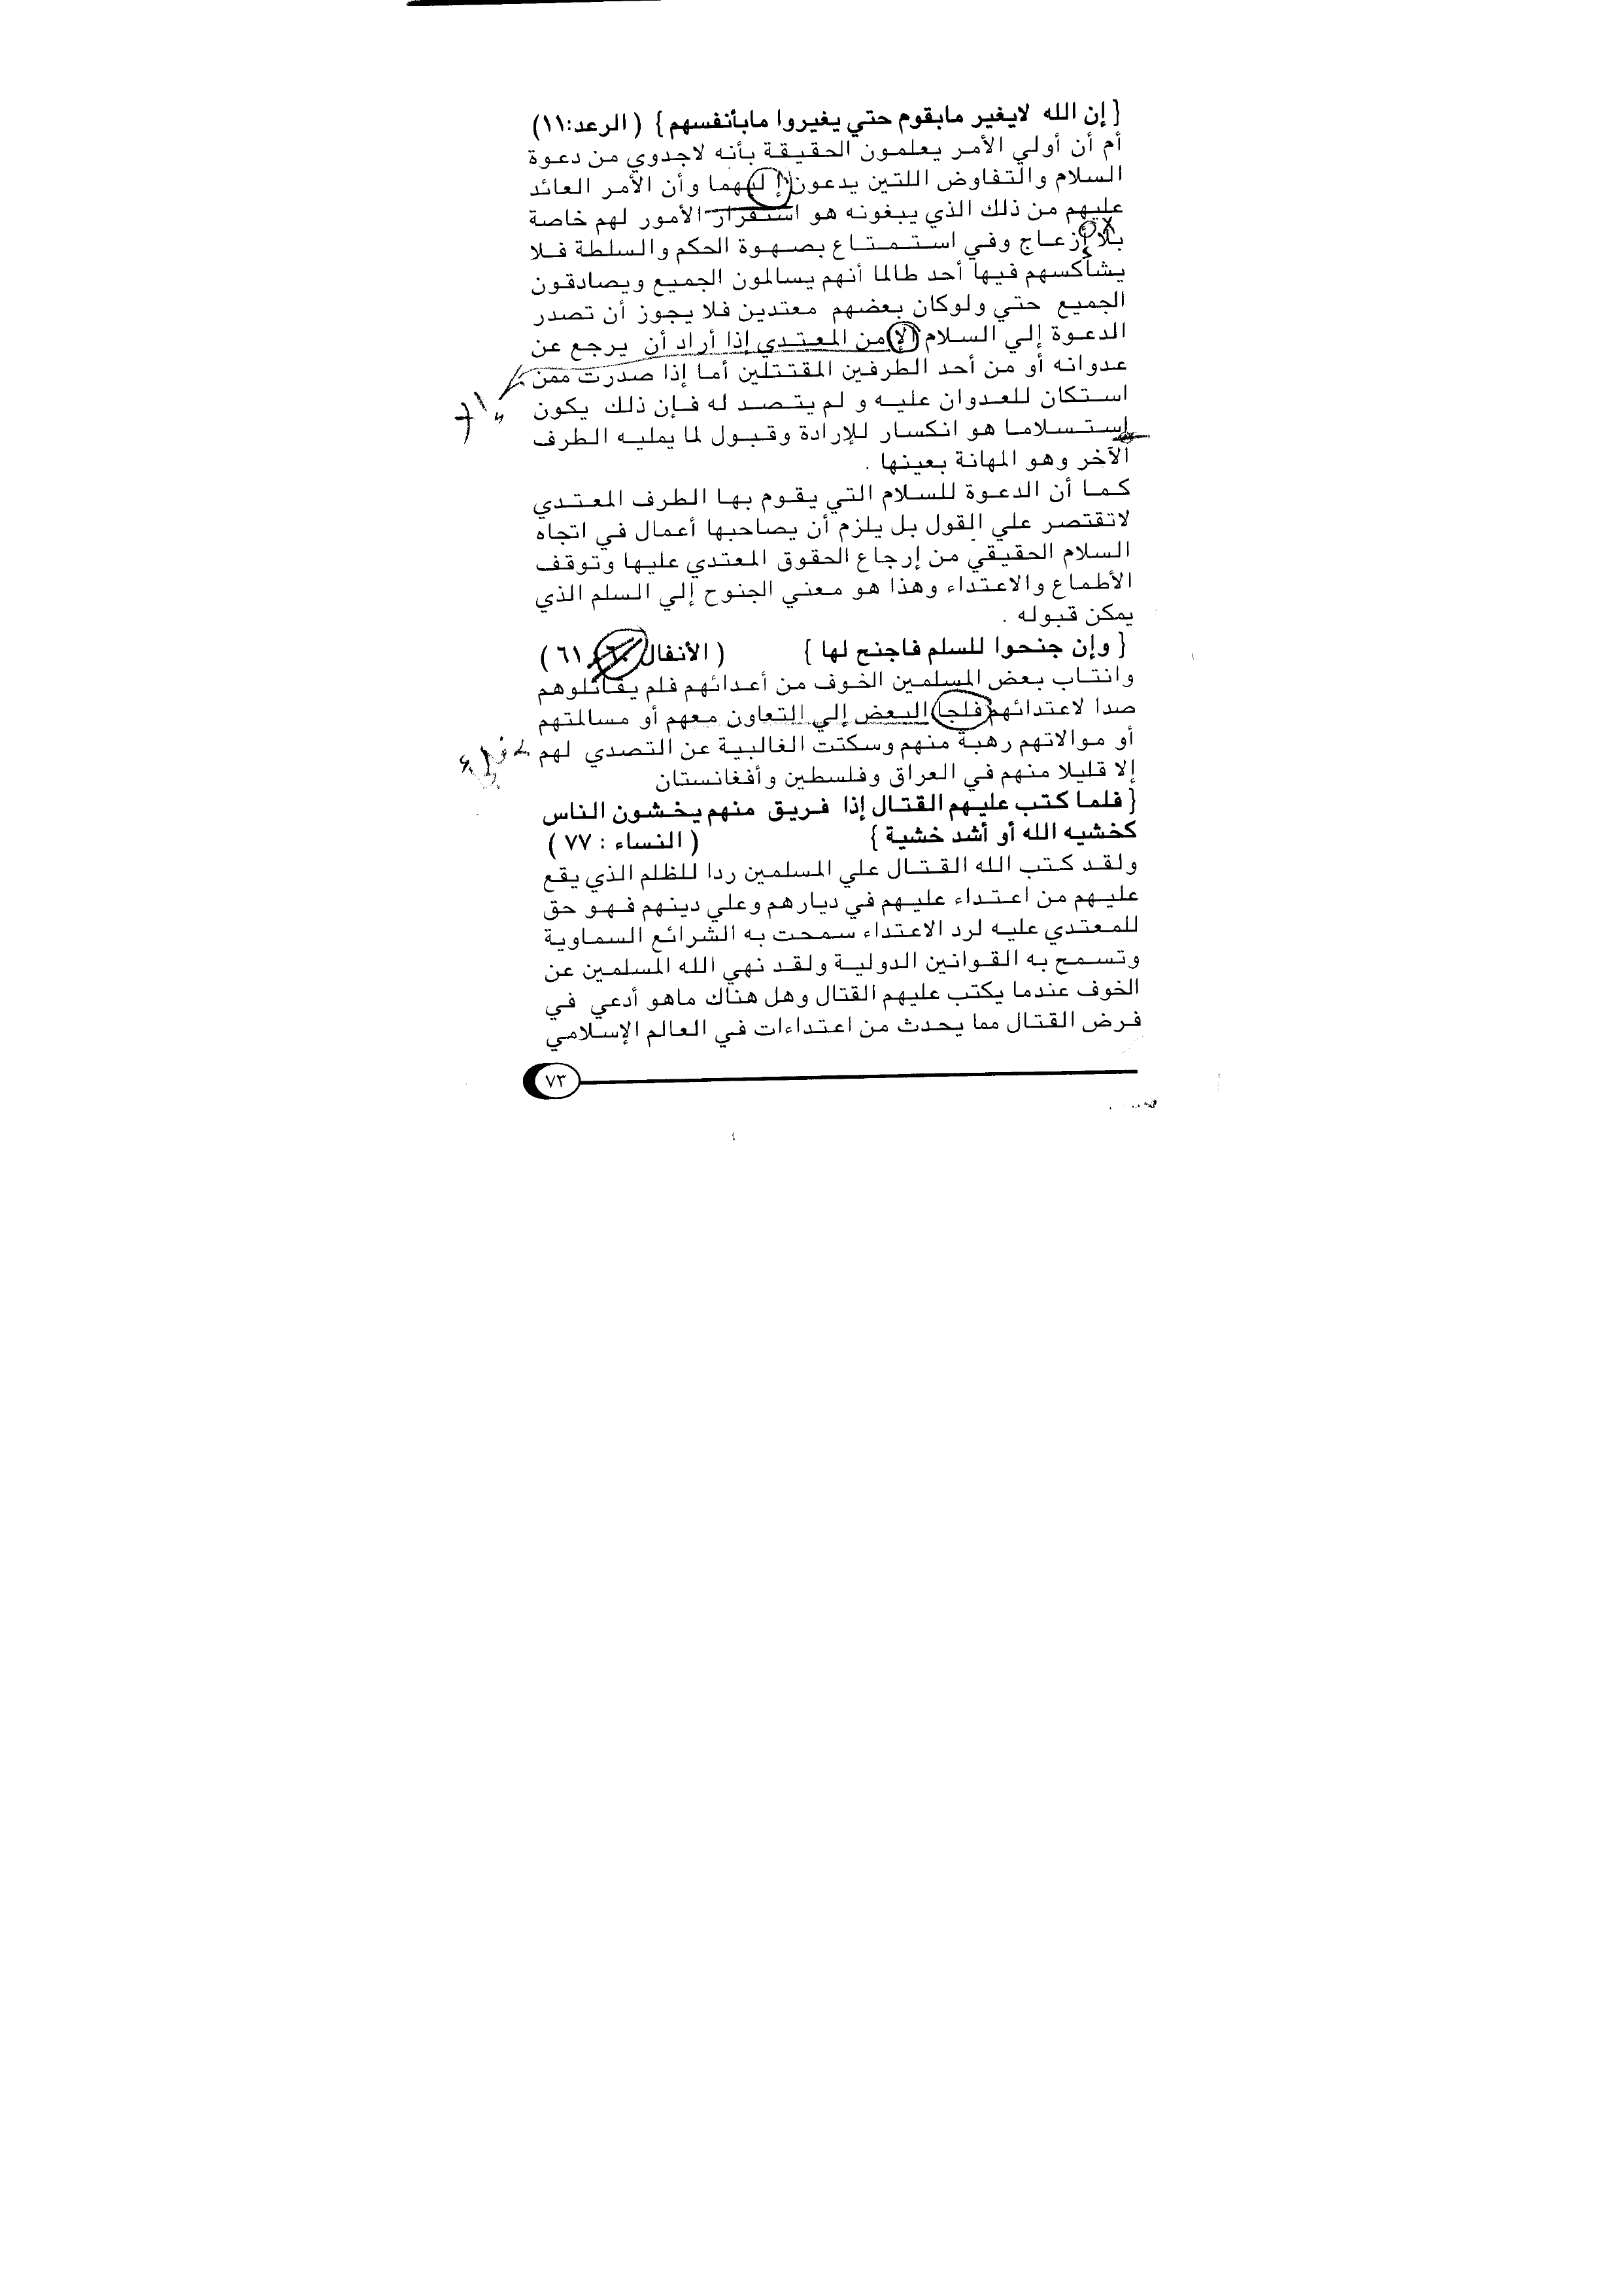 { إن الله لايغير مابقوم حتي يغيروا مابأنفسهم } ( الرعد:١١)
أم أن أولي الأمر يعلمون الحقيقة بأنه لاجدوي من دعوة
السلام والتفاوض اللتين يدعون إليهما وأن الأمر العائد
عليهم من ذلك الذي يبغونه هو استقرار الأمور لهم خاصة
بلا إزعاج وفي استمتاع بصهوة الحكم والسلطة فلا
يشاكسهم فيها أحد طالما أنهم يسالمون الجميع ويصادقون
الجميع حتي ولوكان بعضهم معتدين فلا يجوز أن تصدر
الدعوة إلي السلام إلا من المعتدي إذا أراد أن يرجع عن
عدوانه أو من أحد الطرفين المقتتلين أما إذا صدرت ممن
استكان للعدوان عليه و لم يتصد له فإن ذلك يكون
إستسلاما هو انكسار للإرادة وقبول لما يمليه الطرف
الآخر وهو المهانة بعينها .
كما أن الدعوة للسلام التي يقوم بها الطرف المعتدي
لاتقتصر علي القول بل يلزم أن يصاحبها أعمال في اتجاه
السلام الحقيقي من إرجاع الحقوق المعتدي عليها وتوقف
الأطماع والاعتداء وهذا هو معني الجنوح إلي السلم الذي
يمكن قبوله .
{ وإن جنحوا للسلم فاجنح لها } ( الأنفال ٦١ )
وانتاب بعض المسلمين الخوف من أعدائهم فلم يقاتلوهم
صدا لاعتدائهم فلجا البعض إلي التعاون معهم أو مسالمتهم
أو موالاتهم رهبة منهم وسكتت الغالبية عن التصدي لهم
إلا قليلا منهم في العراق وفلسطين وأفغانستان
{ فلما كتب عليهم القتال إذا فريق منهم يخشون الناس
كخشيه الله أو أشد خشية } ( النساء : ٧٧ )
ولقد كتب الله القتال علي المسلمين ردا للظلم الذي يقع
عليهم من اعتداء عليهم في ديارهم وعلي دينهم فهو حق
للمعتدي عليه لرد الاعتداء سمحت به الشرائع السماوية
وتسمح به القوانين الدولية ولقد نهي الله المسلمين عن
الخوف عندما يكتب عليهم القتال وهل هناك ماهو أدعي في
فرض القتال مما يحدث من اعتداءات في العالم الإسلامي
٧٣